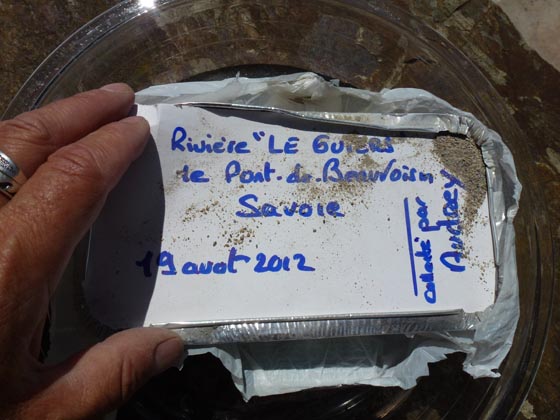 Rivière "LE GUIERS"
le Pont-de-Beauvoisin
Savoie
19 août 2012
collecté par
Audrey